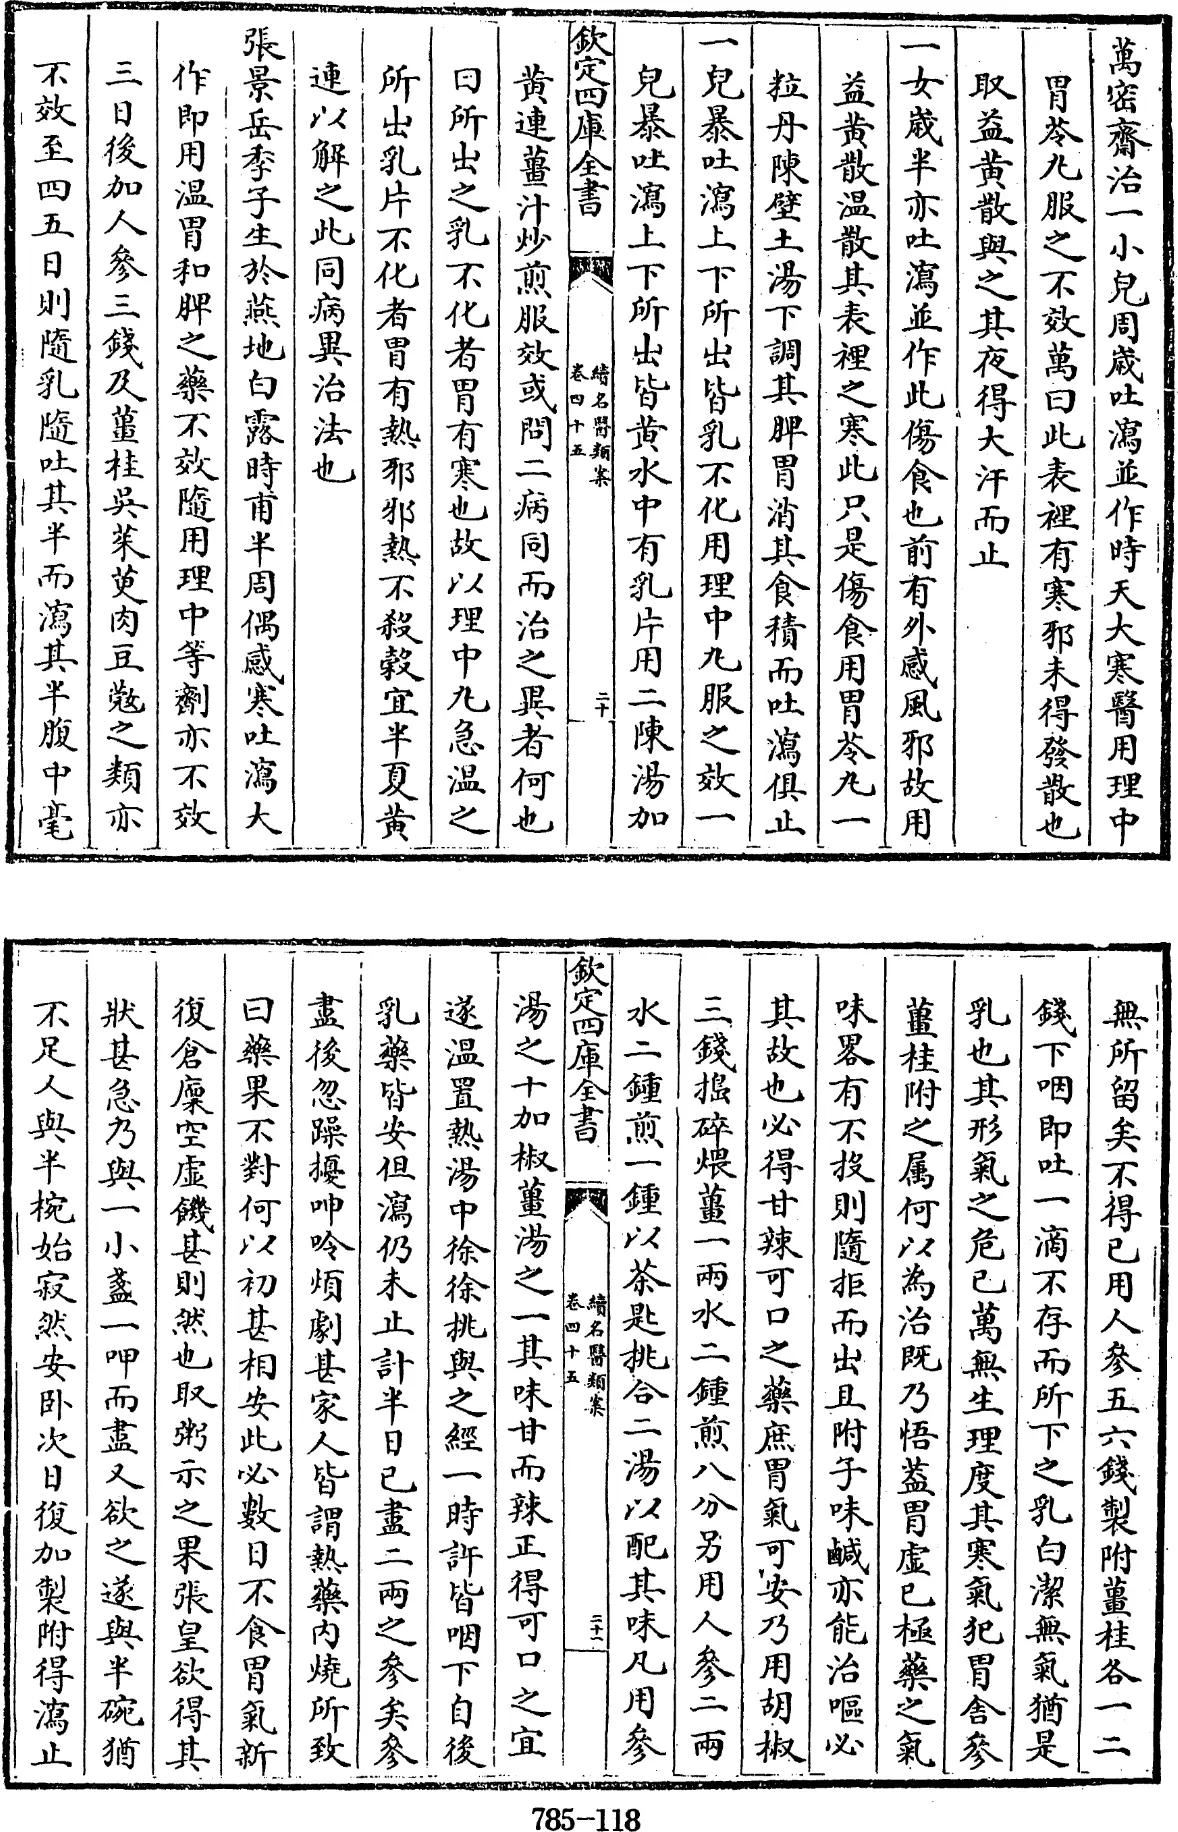 萬密齋治一小兒周歲吐瀉並作時天大寒醫用理中
胃苓丸服之不效萬曰此表裡有寒邪未得發散也
取益黃散與之其夜得大汗而止
一女歲半亦吐瀉並作此傷食也前有外感風邪故用
益黃散溫散其表裡之寒此只是傷食用胃苓丸一
粒丹陳壁土湯下調其脾胃消其食積而吐瀉俱止
一兒暴吐瀉上下所出皆乳不化用理中丸服之效一
兒暴吐瀉上下所出皆黃水中有乳片用二陳湯加
欽定四庫全書
續名醫類案
卷四十五
二十
黃連薑汁炒煎服效或問二病同而治之異者何也
曰所出之乳不化者胃有寒也故以理中丸急溫之
所出乳片不化者胃有熱邪邪熱不殺穀宜半夏黃
連以解之此同病異治法也
張景岳季子生於燕地白露時甫半周偶感寒吐瀉大
作即用溫胃和脾之藥不效隨用理中等劑亦不效
三日後加人參三錢及薑桂吳茱萸肉豆蔻之類亦
不效至四五日則隨乳隨吐其半而瀉其半腹中毫
無所留矣不得已用人參五六錢製附薑桂各一二
錢下咽即吐一滴不存而所下之乳白潔無氣猶是
乳也其形氣之危已萬無生理度其寒氣犯胃舍參
薑桂附之属何以為治既乃悟蓋胃虛已極藥之氣
味畧有不投則隨拒而出且附子味鹹亦能治嘔必
其故也必得甘辣可口之藥庶胃氣可安乃用胡椒
三錢搗碎煨薑一兩水二鍾煎八分另用人參二兩
水二鍾煎一鍾以茶匙挑合二湯以配其味凡用參
欽定四庫全書
續名醫類案
卷四十五
二十一
湯之十加椒薑湯之一其味甘而辣正得可口之宜
遂溫置熱湯中徐徐挑與之經一時許皆咽下自後
乳藥皆安但瀉仍未止計半日已盡二兩之參矣參
盡後忽躁擾呻吟煩劇甚家人皆謂熱藥內燒所致
曰藥果不對何以初甚相安此必數日不食胃氣新
復倉廩空虛饑甚則然也取粥示之果張皇欲得其
狀甚急乃與一小盞一呷而盡又欲之遂與半碗猶
不足人與半椀始寂然安卧次日復加製附得瀉止
785-118